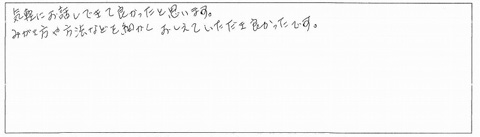 気軽にお話しできて良かったと思います。
みがき方や方法などを細かくおしえていただき良かったです。